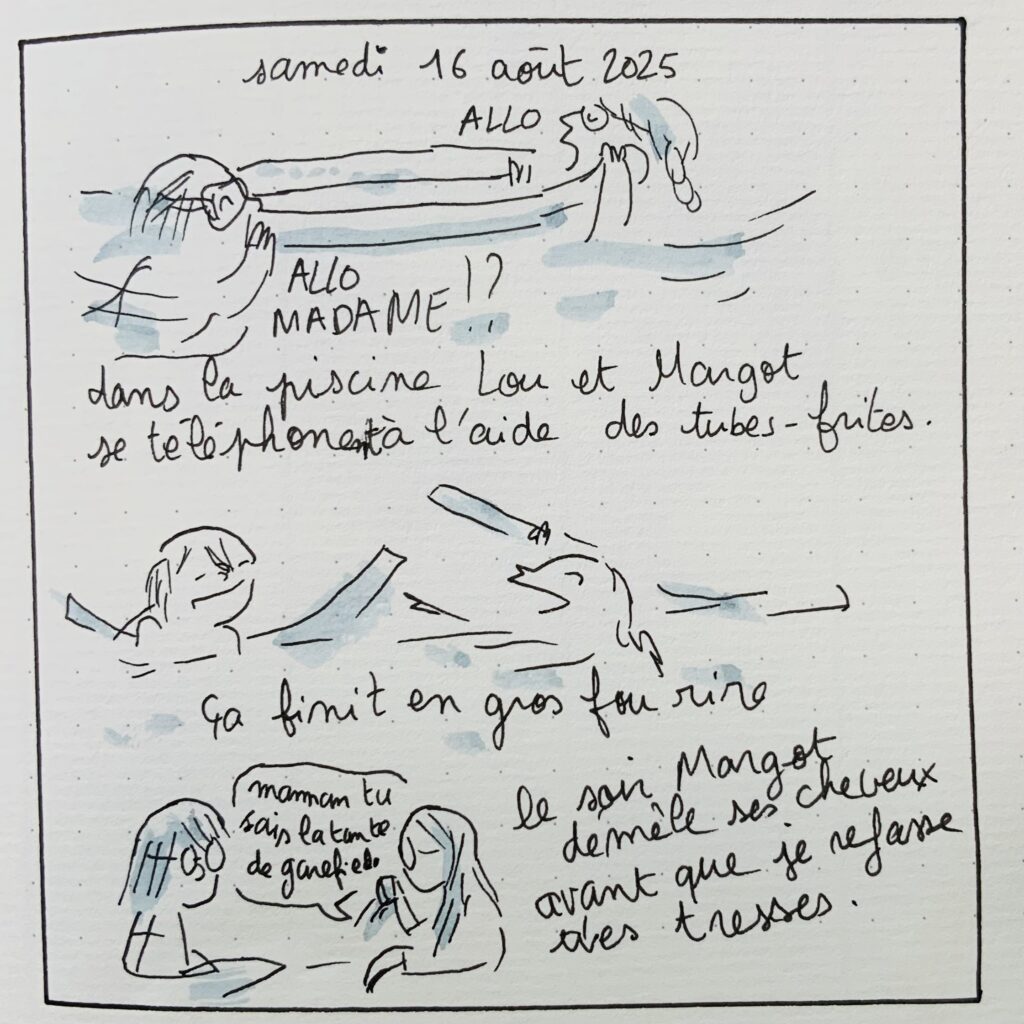 samedi 16 août 2025
ALLO
ALLO
MADAME !?
dans la piscine Lou et Margot
se téléphonent à l'aide des tubes-frites.
ça finit en gros fou rire
mamman tu
sais la tante
de
le soir Margot
demêle ses cheveux
avant que je refasse
des tresses.